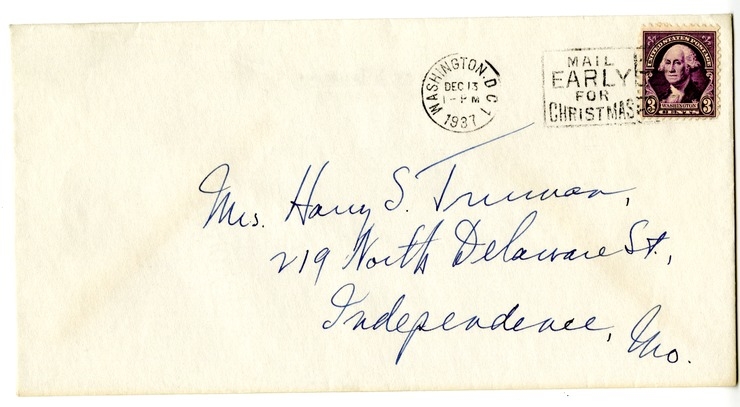 UNITED STATES POSTAGE
WASHINGTON
3 CENTS 3
WASHINGTON, D.C. 1
DEC 13
1-PM
1937
MAIL
EARLY
FOR
CHRISTMAS
Mrs. Harry S. Truman,
219 North Delaware St.,
Independence, Mo.